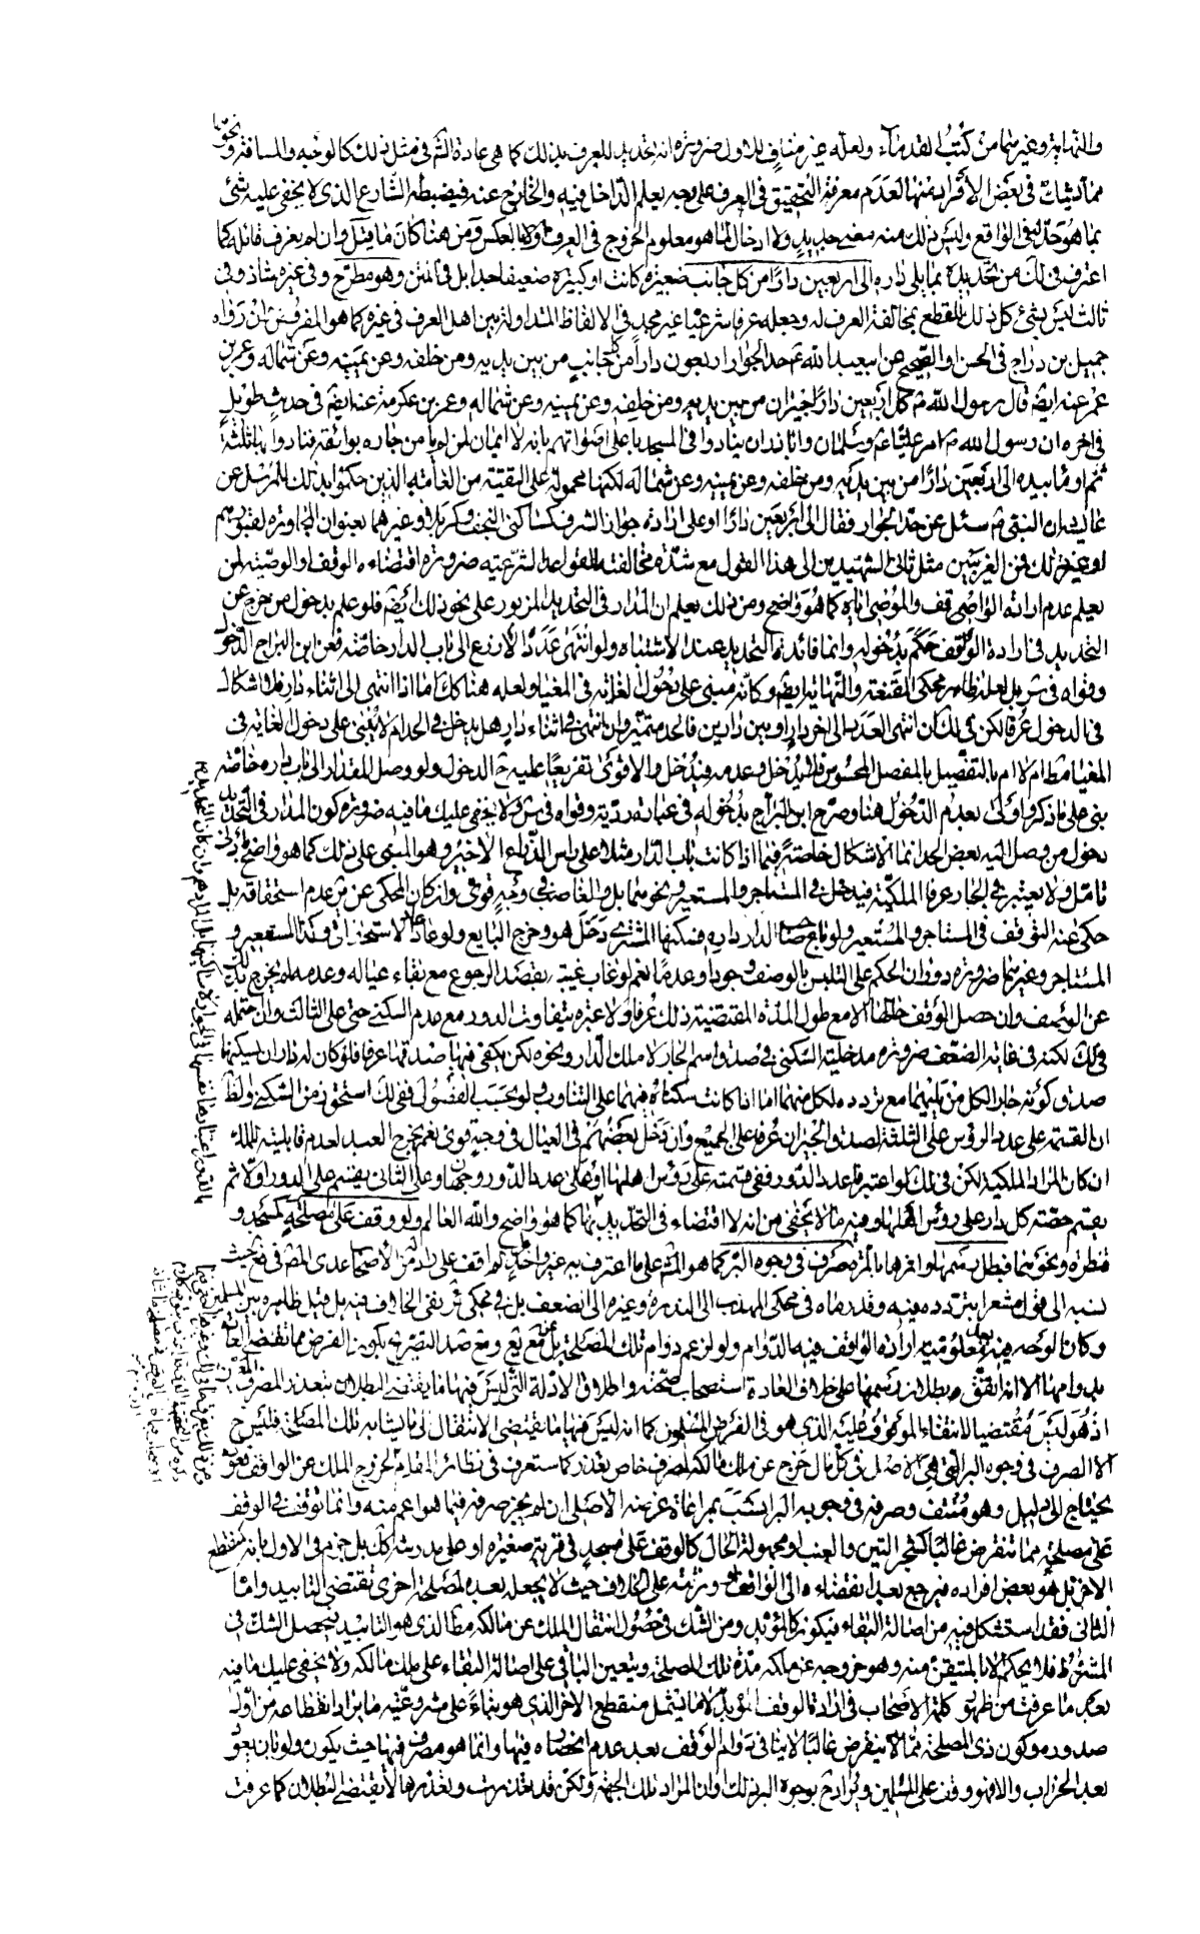 والنهاية وغيرهما من كتب القدماء ولعله غير مناف للاول ضرورة انه تحديد للعرف بذلك كما هى عادة الشرع فى مثل ذلك كالوجه والمسافة ونحوهما
مما يشك فى بعض الافراد منها لعدم معرفة التحقيق فى العرف على وجه يعلم الداخل فيه والخارج عنه فيضبطه الشارع الذى لا يخفى عليه شئ
بما هو حد له فى الواقع وليس ذلك منه معنى جديد ولا ادخال لما هو معلوم الخروج فى العرف ولا بالعكس ومن هنا كان ما قيل وان لم يعرف قائله كما
اعترف من تحديده بما يلى داره الى اربعين دارا من كل جانب صغيرة كانت او كبيرة ضعيفا جدا بل فى المتن وهو مطرح وفى غيره شاذ وفى
ثالث ليس بشئ كل ذلك للقطع بمخالفة العرف له وجعله عرفا شرعيا غير مجد فى الالفاظ المتداولة بين اهل العرف فى غيره كما هو المفروض وان رواه
جميل بن دراج فى الحسن او الصحيح عن ابى عبد الله ع حد الجوار اربعون دارا من كل جانب من بين يديه ومن خلفه وعن يمينه وعن شماله وعمرو بن
عكرمة عنه ايضا قال رسول الله ص كل اربعين دارا جيران من بين يديه ومن خلفه وعن يمينه وعن شماله وعمرو بن عكرمة عنه ايضا فى حديث طويل
فى اخره ان رسول الله ص امر عليا ع وسلمان وابا ذر ان ينادوا فى المسجد باعلى اصواتهم بانه لا ايمان لمن لم يأمن جاره بوائقه فنادوا بها ثلثا
ثم اومأ بيده الى اربعين دارا من بين يديه ومن خلفه وعن يمينه وعن شماله لكنها محمولة على التقية من العامة الذين حكموا بذلك للمرسل عن
ان النبى ص سئل عن حد الجوار فقال الى اربعين دارا او على ارادة جوار الشرف كساكنى النجف وكربلا وغيرهما بعنوان المجاورة لقبورهم
او غير ذلك فمن الغريب مثل ثانى الشهيدين الى هذا القول مع شدة مخالفته للقواعد الشرعية ضرورة اقتضاءه الوقف والوصية لمن
يعلم عدم ارادة الواقف والموصى اياه كما هو واضح ومن ذلك يعلم ان المدار فى التحديد المزبور على نحو ذلك ايضا فلو علم بدخول من خرج عن
التحديد فى ارادة الواقف حكم بدخوله وانما فائدة التحديد عند الاشتباه ولو انتهى عدد الاذرع الى باب الدار خاصة فعن ابن البراج الدخول
وقواه فى س بل لعله ظاهر محكى المقنعة والنهاية ايضا وكأنه مبنى على دخول الغاية فى المغيا ولعله هنا كك اما اذا انتهى الى اثناء دار فلا اشكال
فى الدخول عرفا لكن فى لك ان انتهى العدد الى اخر دار او بين دارين فالحد متميز وان انتهى فى اثناء دار هل يدخل فى الحد ام لا يبنى على دخول الغاية فى
المغيا مطلقا ام لا ام بالتفصيل بالمفصل المحسوس فلا يدخل وعدمه فيدخل والاقوى تفريعا عليه ح الدخول ولو وصل المقدار الى باب داره خاصة
بنى على ما ذكر واولى بعدم الدخول هنا وصرح ابن البراج بدخوله فى عبارة ردية وقواه فى س ولا يخفى عليك ما فيه ضرورة كون المدار فى التحديد
دخول من وصل اليه بعض الحد انما الاشكال خاصة فيما اذا كانت باب الدار مثلا على راس الذراع الاخير وهو المبنى على ذلك كما هو واضح بادنى
تامل ولا يعتبر فى الجار عرفا الملكية فيدخل فى المستاجر والمستعير ونحوهما بل والغاصب فى وجه قوى وان كان المحكى عن س عدم استحقاقه بل
حكى عنه التوقف فى المستاجر والمستعير ولو باع صاحب الدار داره فسكنها المشترى دخل هو وخرج البايع ولو عاد عاد الاستحقاق وكذا المستعير و
المستاجر وغيرهما ضرورة دوران الحكم على التلبس بالوصف وجودا وعدما نعم لو غاب غيبة بقصد الرجوع مع بقاء عياله وعدمه لم يخرج بذلك
عن الوصف وان حصل الوقف خلالها الا مع طول المدة المقتضية ذلك عرفا ولا عبرة بتفاوت الدور مع عدم السكنى حتى على الثالث وان احتمله
فى لك لكنه فى غاية الضعف ضرورة مدخلية السكنى فى صدق اسم الجار لا ملك الدار ونحوه لكن يكفى فيها صدقها عرفا فلو كان له داران يسكنها
صدق كونه جار الكل من يليهما مع تردده لكل منهما اما اذا كانت سكناه فيهما على التناوب ولو بحسب الفصول ففى لك استحق زمن السكنى والظ
ان القسمة على عدد الرؤس على الثلثة لصدق الجيران عرفا على الجميع وان دخل بعضهم فى العيال فى وجه قوى نعم يخرج العبد لعدم قابليته للملك
ان كان المراد الملكية لكن فى لك لو اعتبرنا عدد الدور ففى قسمته على رؤس اهلها او على عدد الدور وجهان وعلى الثانى يقسم على الدور اولا ثم
يقسم حصة كل دار على رؤس اهلها وفيه ما لا يخفى من انه لا اقتضاء فى التحديد بها كما هو واضح والله العالم ولو وقف على مصلحة كمسجد و
قنطرة ونحوهما فبطل رسمها واثرها بالمرة صرف فى وجوه البر كما هو المش على ما اعترف به غير واحد الى الاصحاب عدى المص فى فع حيث
نسبه الى قول مشعرا بتردده فيه وقد رماه فى محكى المهذب الى الندرة وغيره الى الضعف بل فى محكى ئر نفى الخلاف فيه بل قيل ظاهره بين المسلمين
وكان الوجه فيه بعد معلومية ارادة الواقف فيه الدوام ولو لزعم دوام تلك المصلحة بل مع ضد التصريح بكون الفرض مما تقتضى العادة
بدوامها الا انه اتفق بطلان رسمها على خلاف العادة استصحاب صحته واطلاق الادلة التى ليس فيها ما يقتضى البطلان بتعذر المصرف
اذ هو ليس مقتضيا لانتفاء الموقوف عليه الذى هو فى الفرض المسلمون كما انه ليس فيها ما يقتضى الانتقال الى ما يشابه تلك المصلحة فليس ح
الا الصرف فى وجوه البر التى هى الاصل فى كل مال خرج عن ملك مالكه لصرف خاص تعذر كما ستعرف فى نظائر المقام لخروج الملك عن الواقف فعوده
يحتاج الى دليل وهو منتف وصرفه فى وجوه البر انسب بمراعاة غرضه الاصلى ان لم يجز صرفه فيما هو اعم منه وانما توقف فى الوقف
على مصلحة مما تنقرض غالبا كشجر التين والعنب او مجهولة الحال كالوقف على مسجد فى قرية صغيرة او على مدرسة كك بل جزم فى الاول بانه منقطع
الاخر بل هو بعض افراده فيرجع بعد انقضاءه الى الواقف او ورثته على الخلاف حيث لا يجعل بعده لمصلحة اخرى تقتضى التابيد واما
الثانى فقد استشكل فيه من اصالة البقاء فيكون كالمؤبد ومن الشك فى حصول انتقال الملك عن مالكه مطلقا الذى هو التابيد فيحصل الشك فى
المشروط فلا يحكم الا بالمتيقن منه وهو خروجه عن ملكه مدة تلك المصلحة ويتعين الباقى على اصالة البقاء على ملك مالكه ولا يخفى عليك ما فيه
بعد ما عرفت من ظهور كلمة الاصحاب فى ارادة الوقف المؤبد لا ما يشمل منقطع الاخر الذى هو بناء على مشروعيته ما يراد انقطاعه من اول
صدوره وكون ذى المصلحة مما لا ينقرض غالبا لا ينافى دوام الوقف بعد عدم انحصاره فيها وانما هو مصرف فيها حيث يكون ولو بان يعود
بعد الخراب والا فهو وقف على المسلمين ويراد ح بوجوه البر ذلك او ان المراد تلك الجهة ولكن قد تعذرت وتعذرها لا يقتضى البطلان كما عرفت